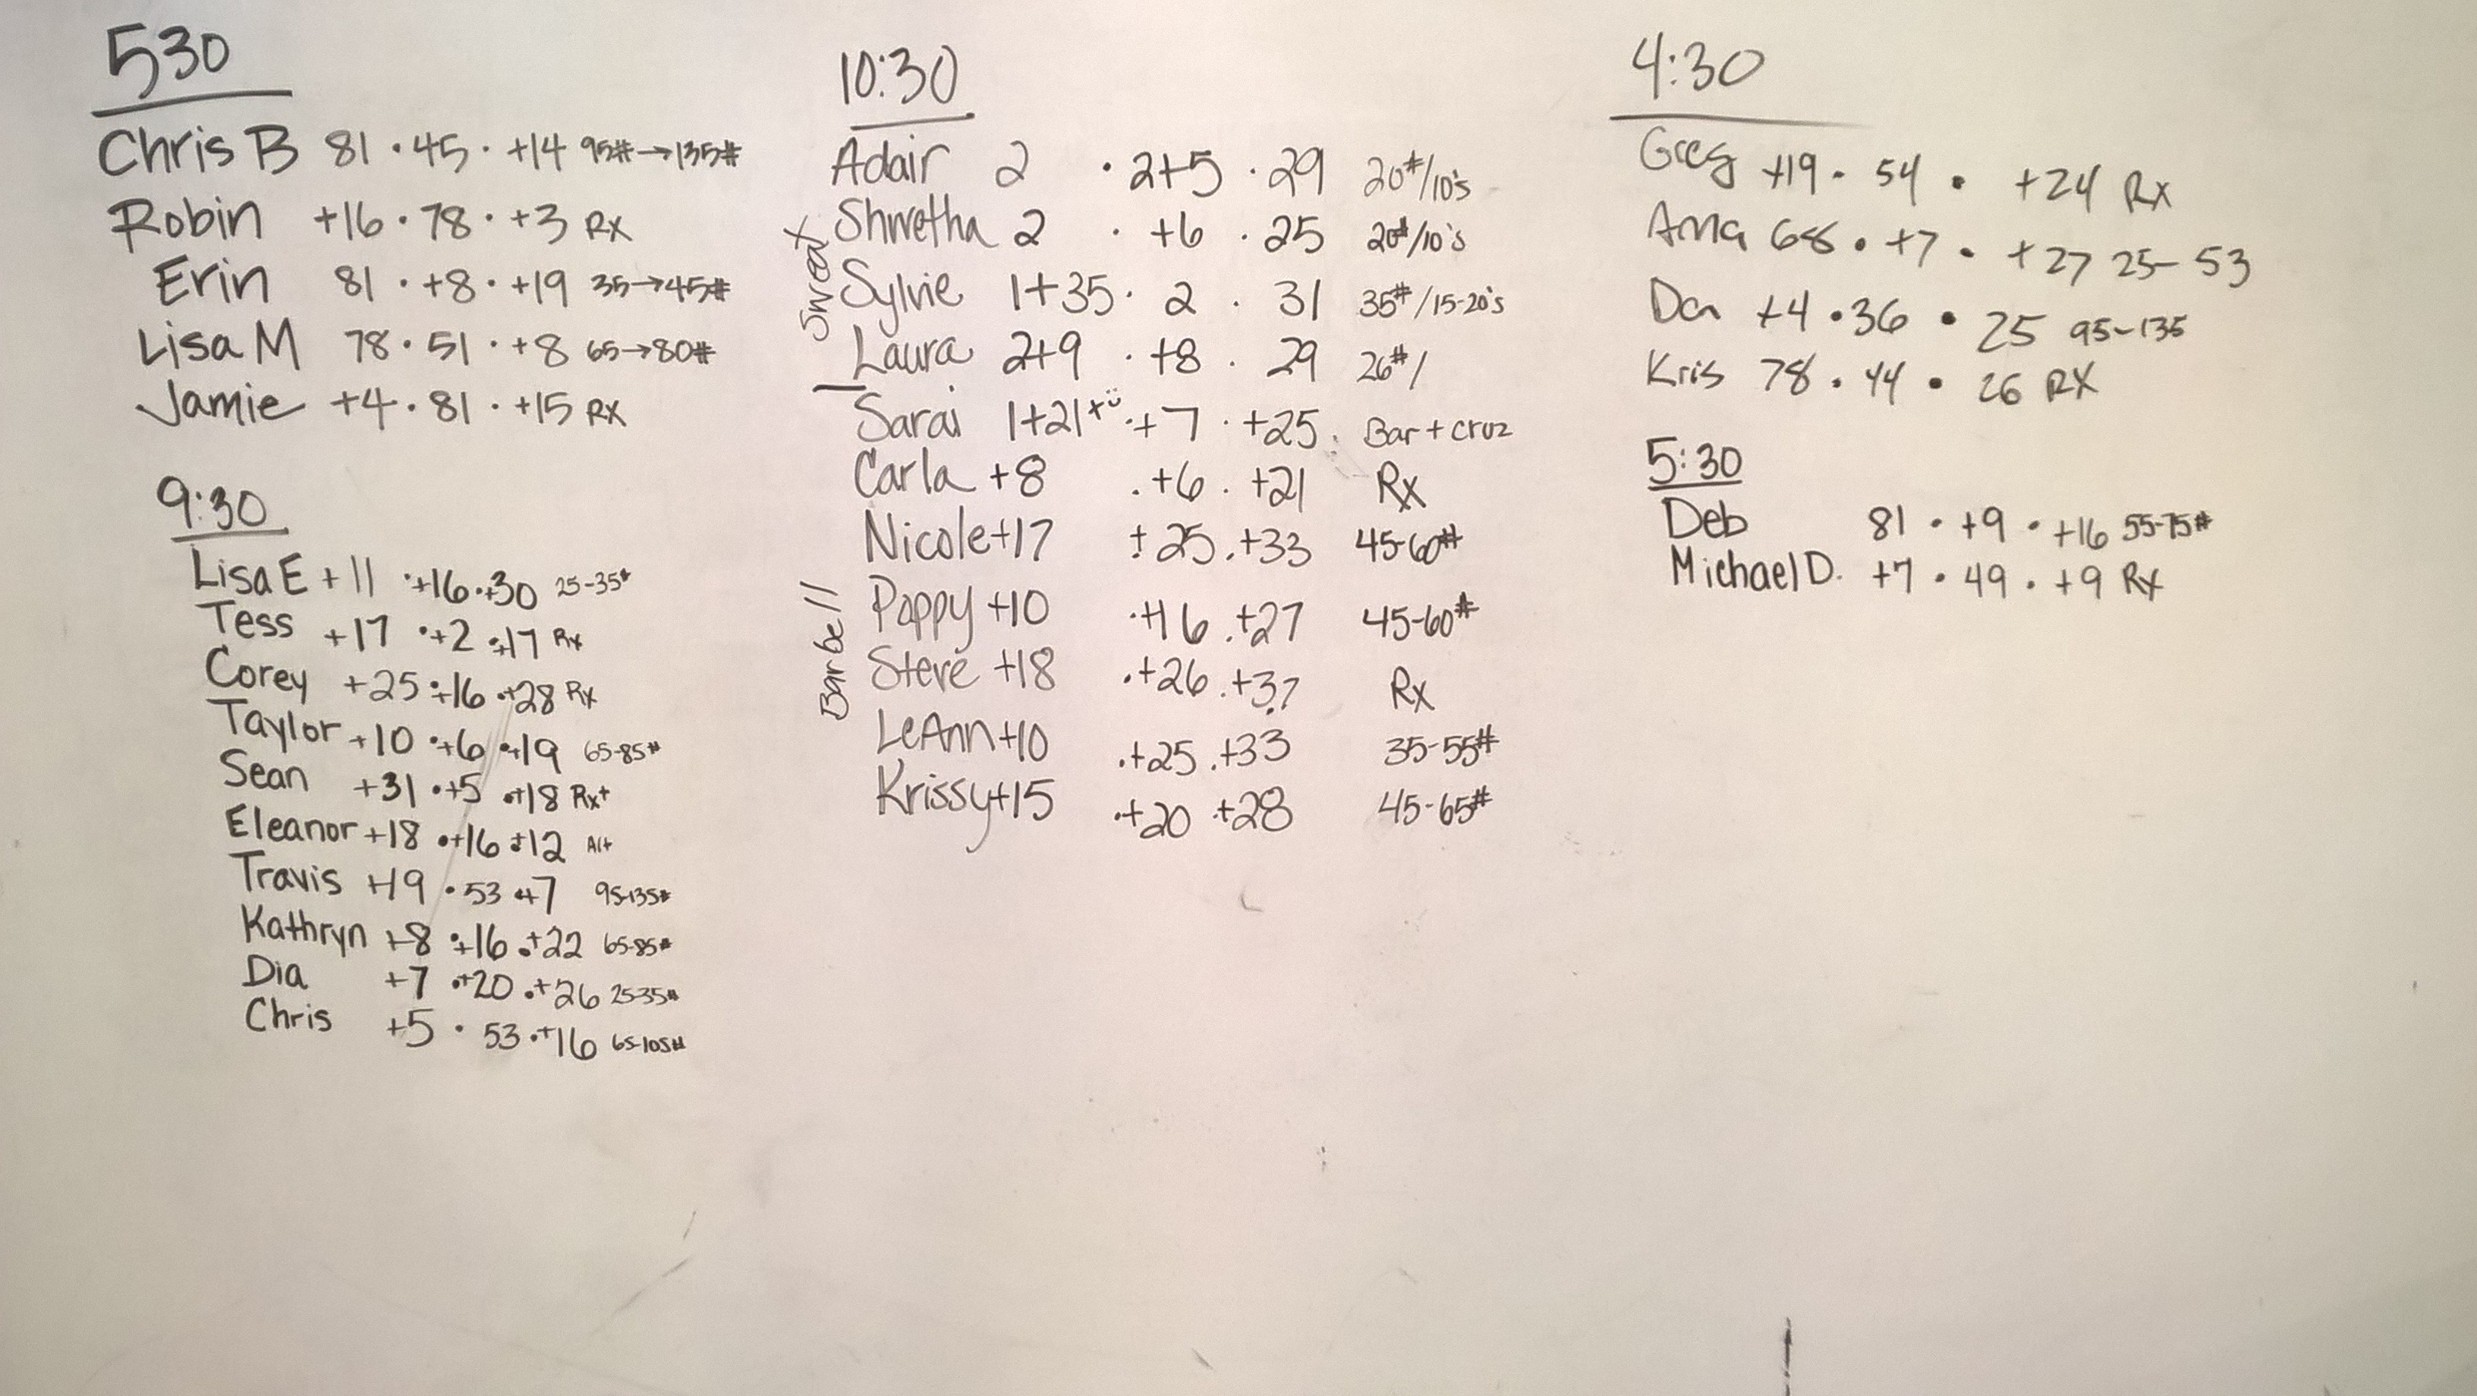 530
Chris B 81 · 45 · +14 95# → 135#
Robin +16 · 78 · +3 RX
Erin 81 · +8 · +19 35 → 45#
Lisa M 78 · 51 · +8 65 → 80#
Jamie +4 · 81 · +15 RX
9:30
Lisa E +11 · +16 · +30 25-35#
Tess +17 · +2 · +17 Rx
Corey +25 · +16 · +28 Rx
Taylor +10 · +6 · +19 65-85#
Sean +31 · +5 · +18 Rx+
Eleanor +18 · +16 · +12 Alt
Travis +19 · 53 · +7 95-135#
Kathryn +8 · +16 · +22 65-85#
Dia +7 · +20 · +26 25-35#
Chris +5 · 53 · +16 65-105#
10:30
Sweat
Adair 2 · 2+5 · 29 20#/10's
Shwetha 2 · +6 · 25 20#/10's
Sylvie 1+35 · 2 · 31 35#/15-20's
Laura 2+9 · +8 · 29 26#/
Barbell
Sarai 1+21+ · +7 · +25 · Bar + cruz
Carla +8 · +6 · +21 Rx
Nicole +17 · +25 · +33 45-60#
Poppy +10 · +16 · +27 45-60#
Steve +18 · +26 · +37 Rx
LeAnn +10 · +25 · +33 35-55#
Krissy +15 · +20 · +28 45-65#
4:30
Greg +19 · 54 · +24 Rx
Anna 68 · +7 · +27 25-53
Dan +4 · 36 · 25 95-135
Kris 78 · 44 · 26 RX
5:30
Deb 81 · +9 · +16 55-75#
Michael D. +7 · 49 · +9 Rx